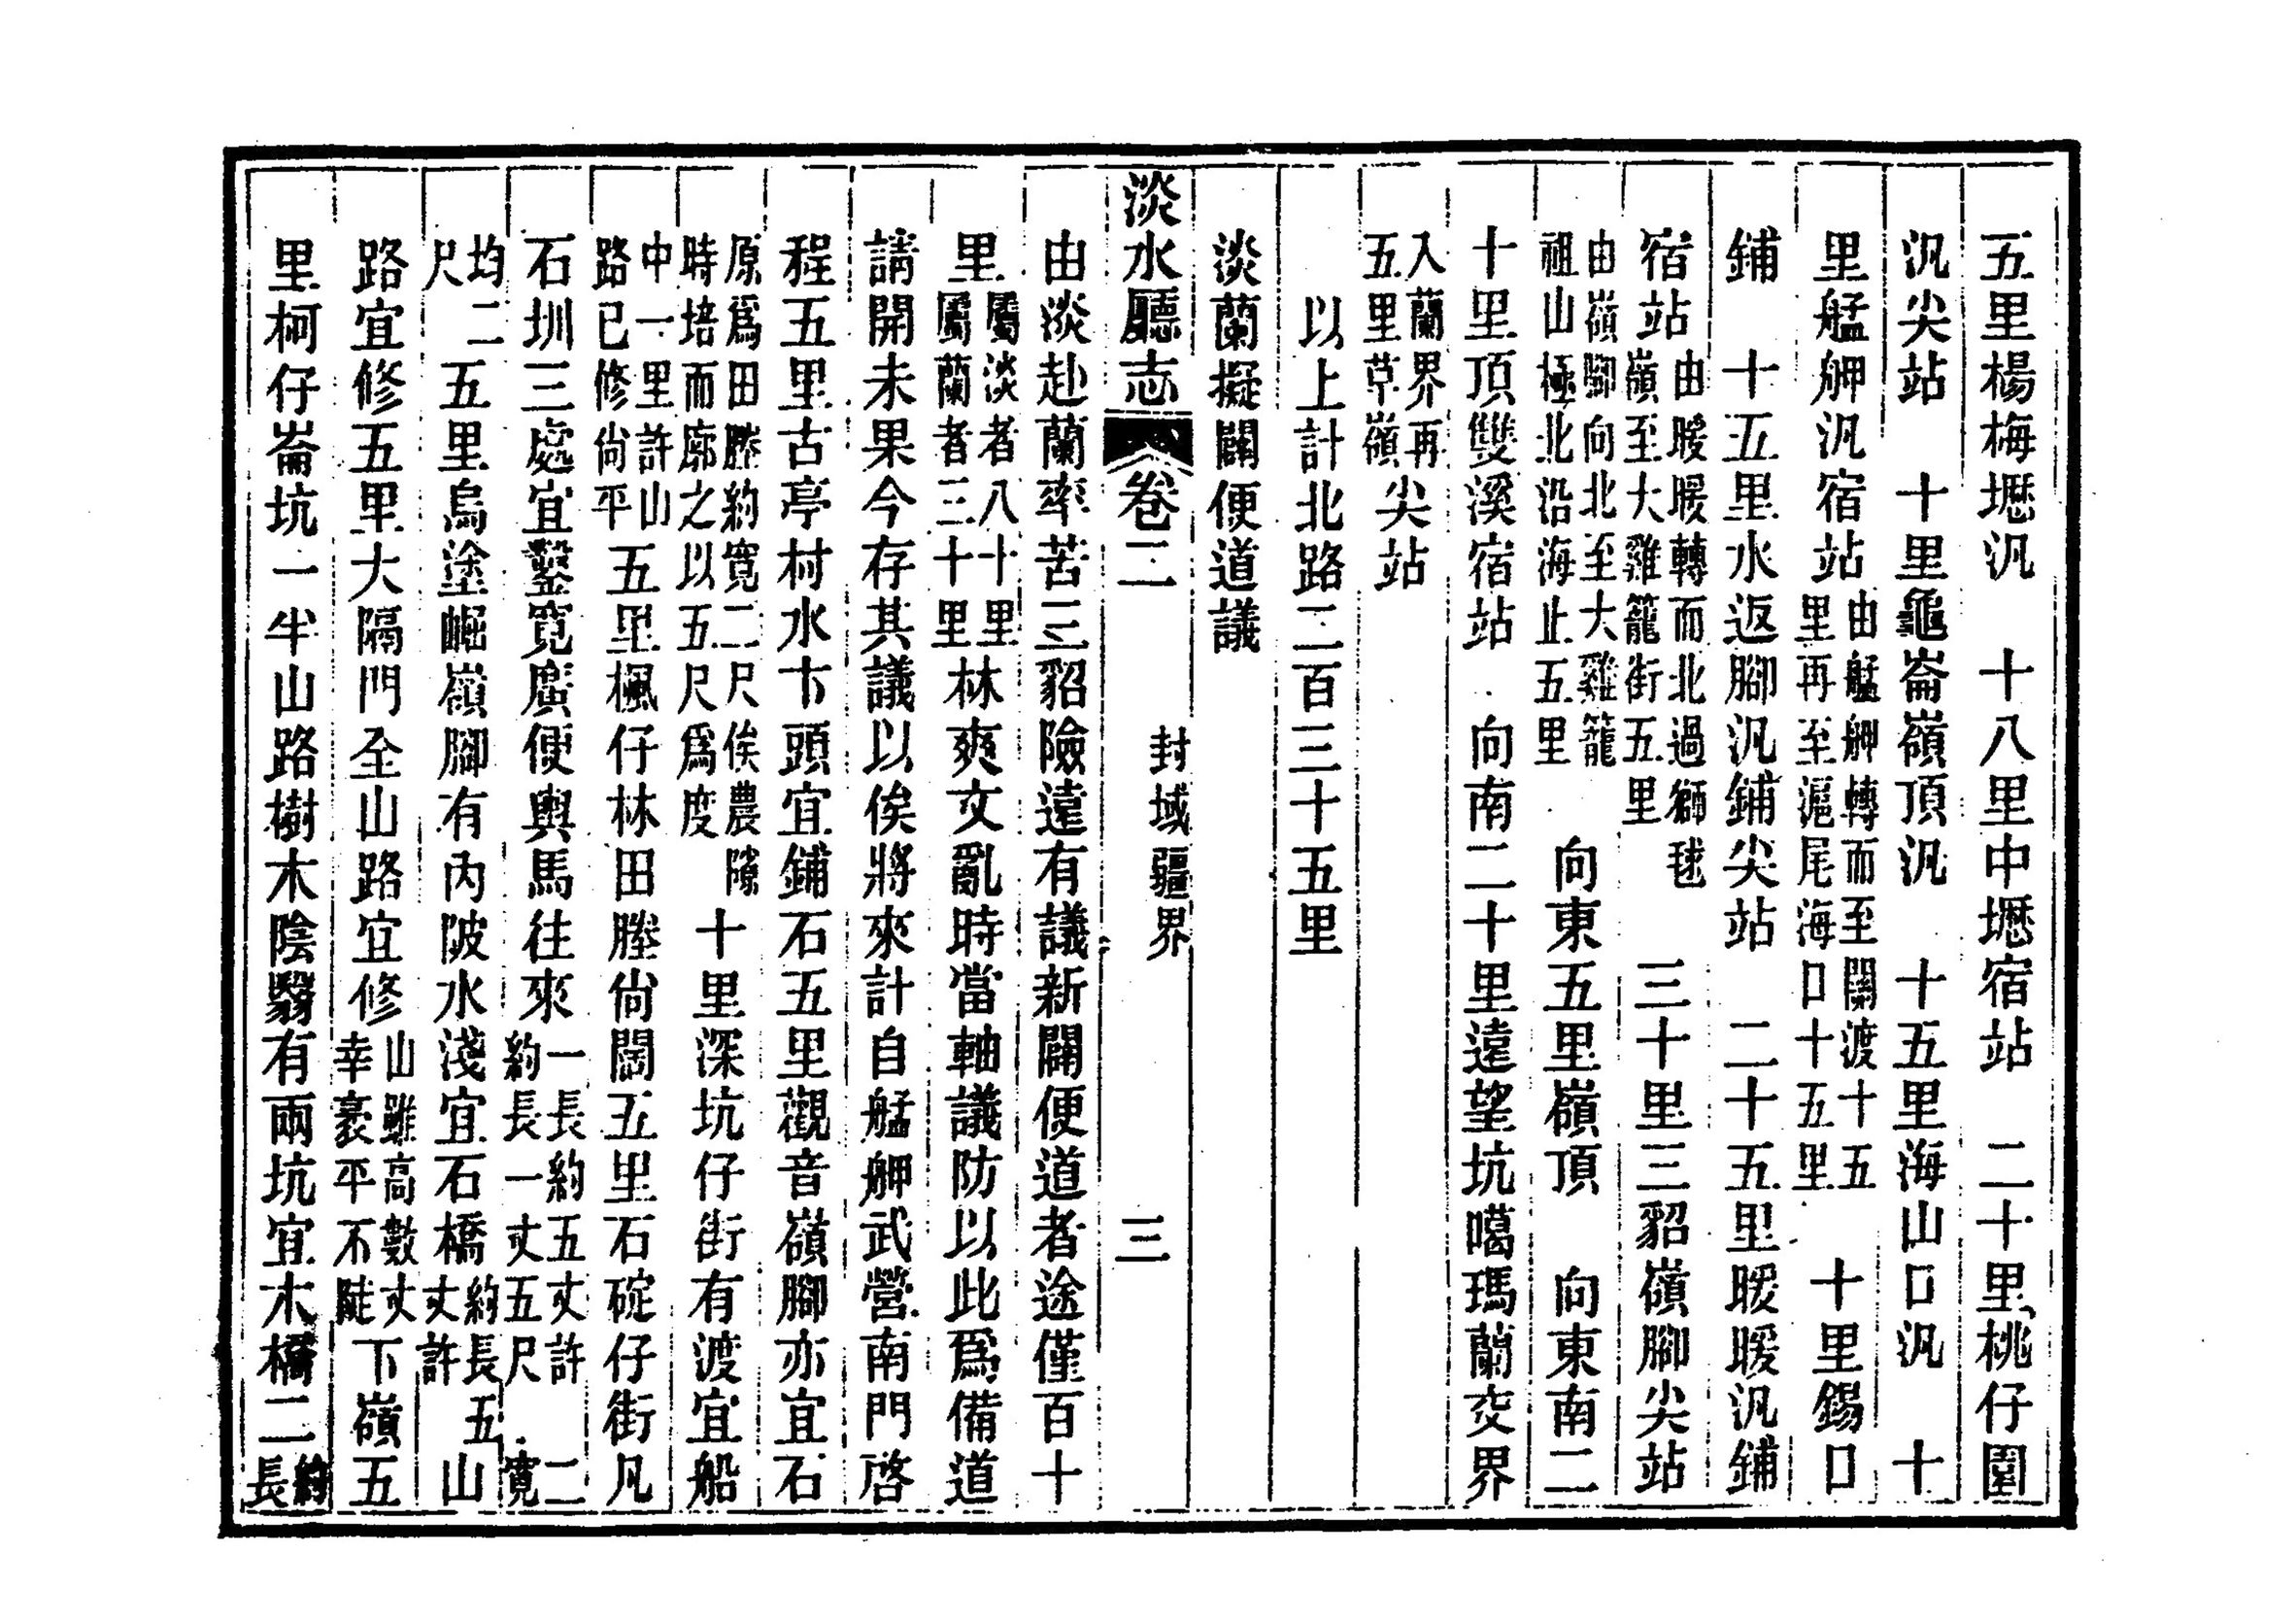 五里楊梅壢汛　十八里中壢宿站　二十里桃仔園
汛尖站　十里龜崙嶺頂汛　十五里海山口汛　十
里艋舺汛宿站由艋舺轉而至關渡十五里再至滬尾海口十五里　十里錫口
鋪　十五里水返腳汛鋪尖站　二十五里暖暖汛鋪
宿站由暖暖轉而北過獅毬嶺至大雞籠街五里　三十里三貂嶺腳尖站
由嶺腳向北至大雞籠祖山極北沿海止五里　向東五里嶺頂　向東南二
十里頂雙溪宿站　向南二十里遠望坑噶瑪蘭交界
入蘭界再五里草嶺尖站
以上計北路二百三十五里
淡蘭擬闢便道議
淡水廳志　卷二　封域　疆界　三
由淡赴蘭率苦三貂險遠有議新闢便道者途僅百十
里屬淡者八十里屬蘭者三十里林爽文亂時當軸議防以此爲備道
請開未果今存其議以俟將來計自艋舺武營南門啓
程五里古亭村水卞頭宜鋪石五里觀音嶺腳亦宜石
原爲田塍約寬二尺俟農隙時培而廓之以五尺爲度　十里深坑仔街有渡宜船
中一里許山路已修尙平五里楓仔林田塍尙闊五里石碇仔街凡
石圳三處宜鑿寬廣便輿馬往來一長約五丈許二約長一丈五尺寬
均二尺五里烏塗崛嶺腳有內陂水淺宜石橋約長五丈許山
路宜修五里大隔門全山路宜修山雖高數丈幸袤平不陡下嶺五
里柯仔崙坑一半山路樹木陰翳有兩坑宜木橋二約長